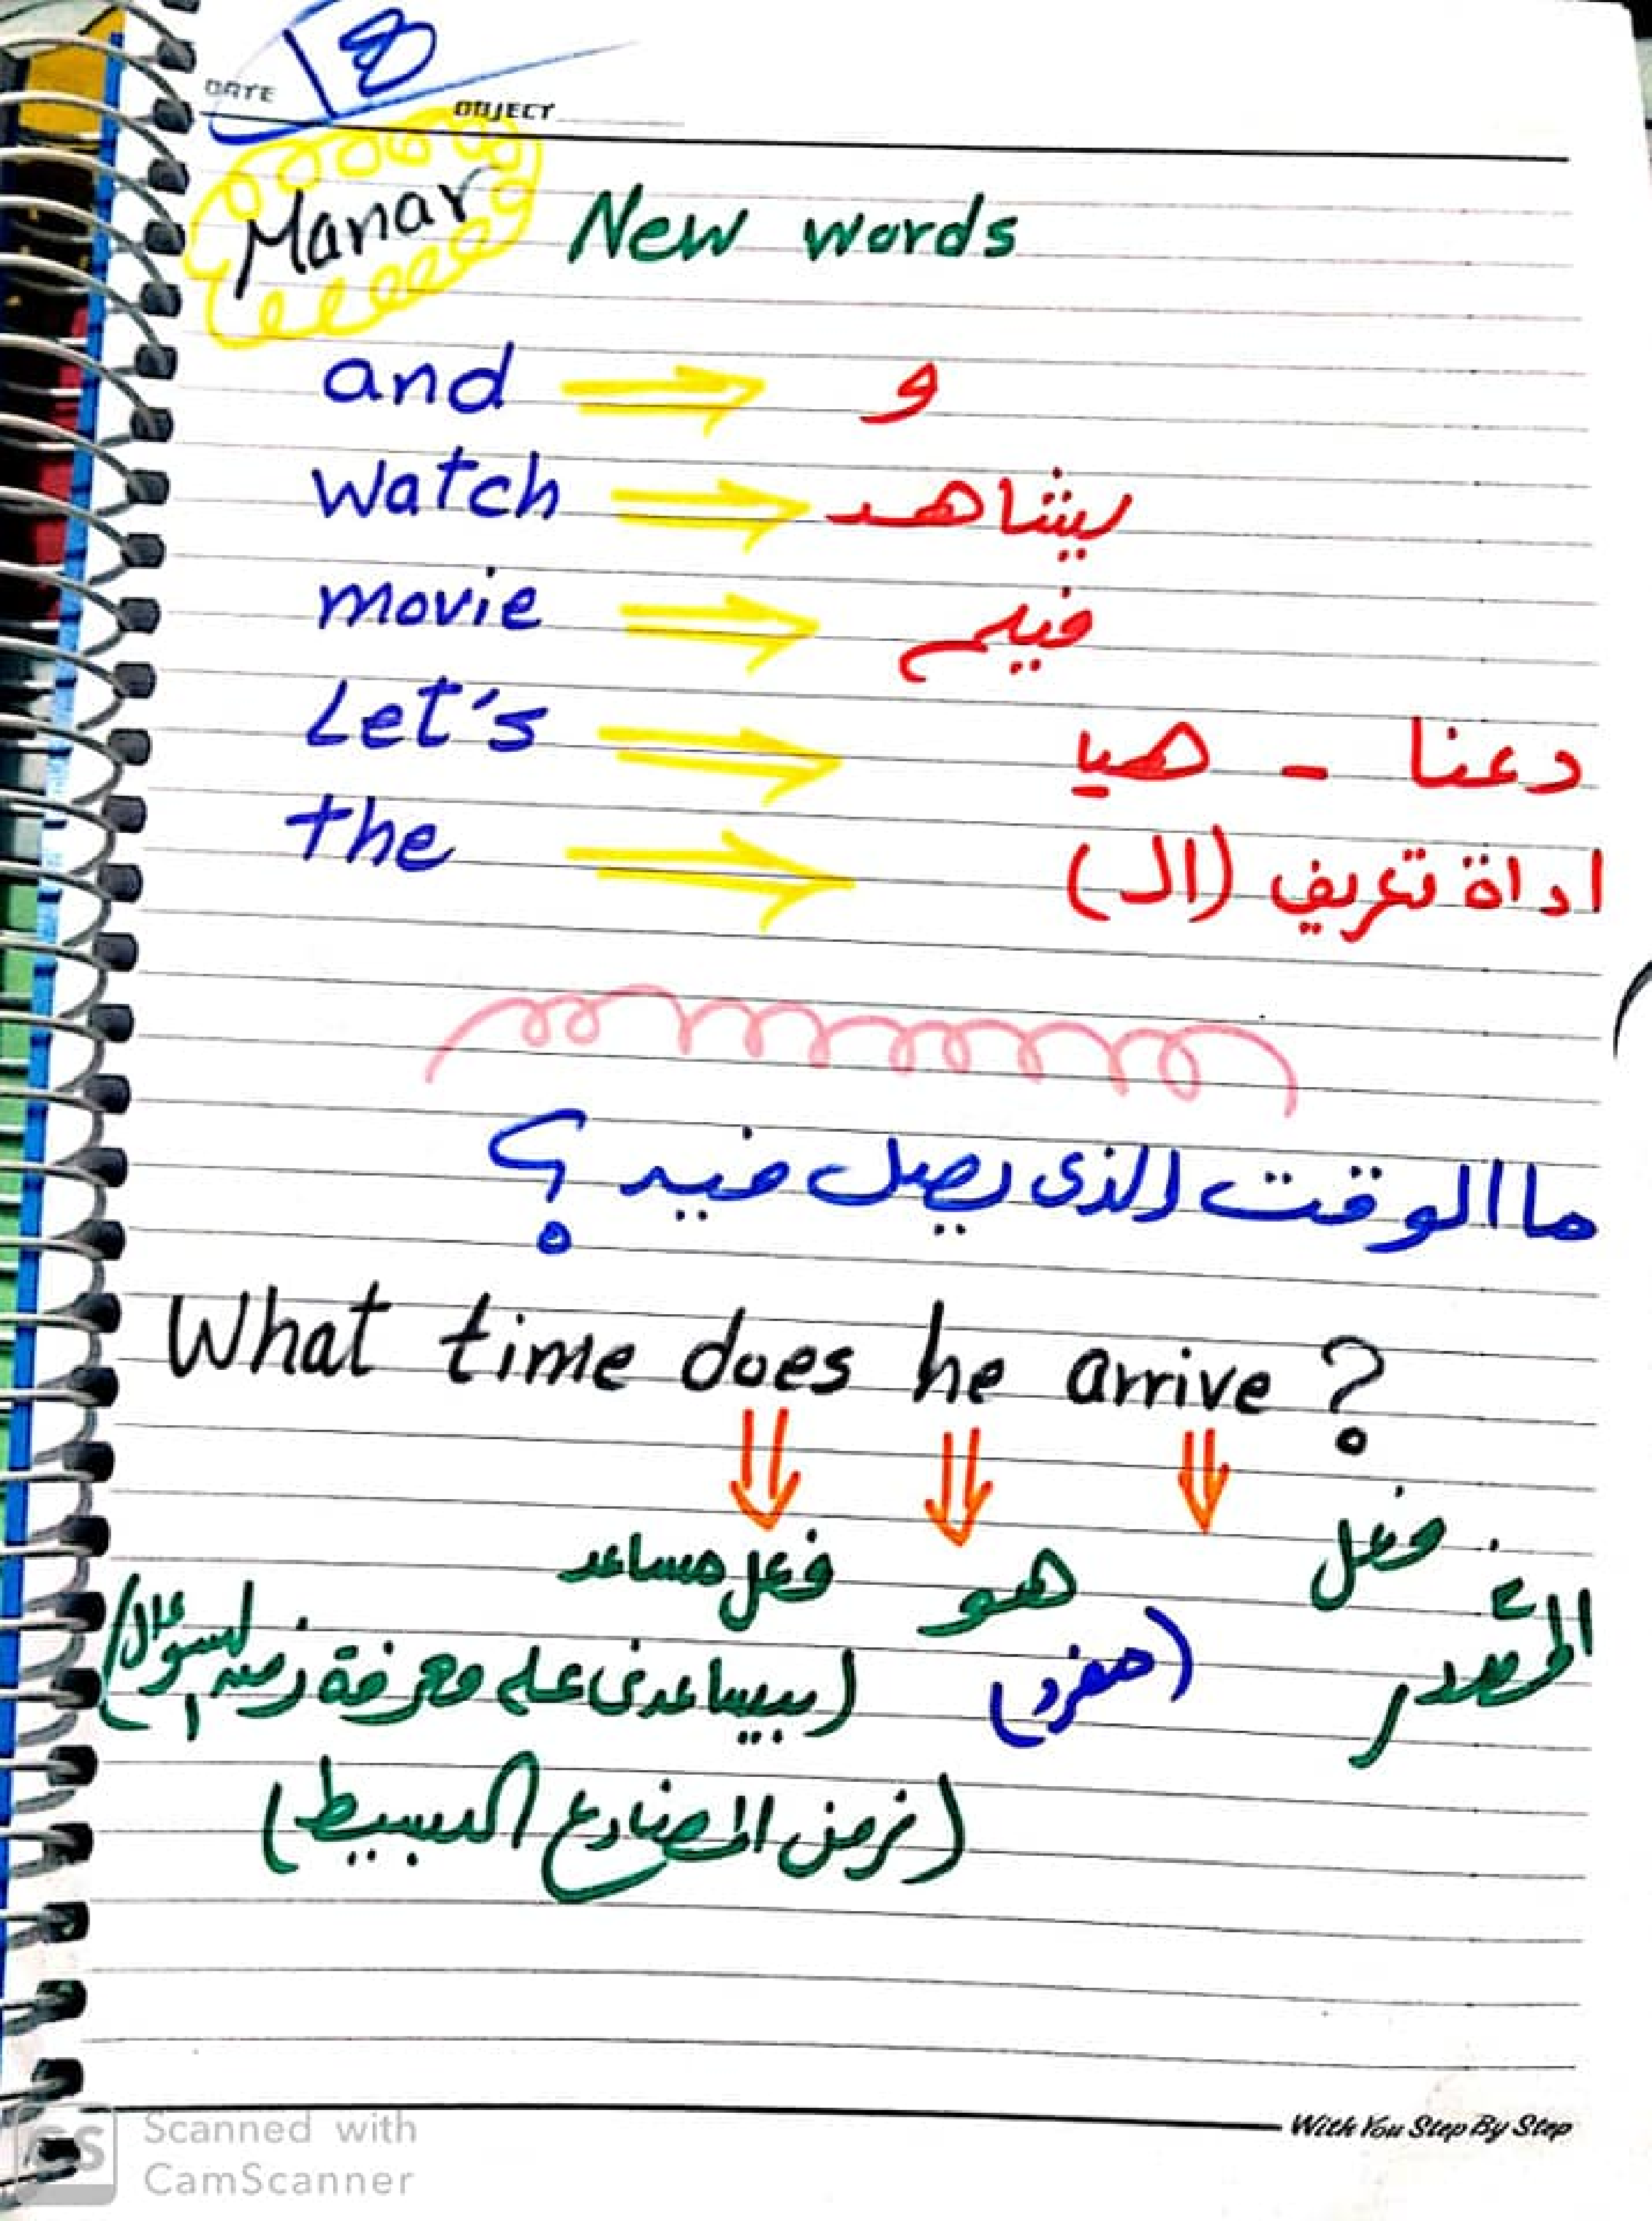 DATE
OBJECT
Manar
New words
and ⇒ و
watch ⇒ يشاهد
movie ⇒ فيلم
Let's ⇒ دعنا - هيا
the ⇒ اداة تعريف (ال)
ما الوقت الذى يصل فيه ؟
What time does he arrive ?
فعل مساعد
هو
فعل
(بيساعدنى على معرفة زمن السؤال)
(مفرد)
المصدر
(زمن المضارع البسيط)
With You Step By Step
CS
Scanned with
CamScanner